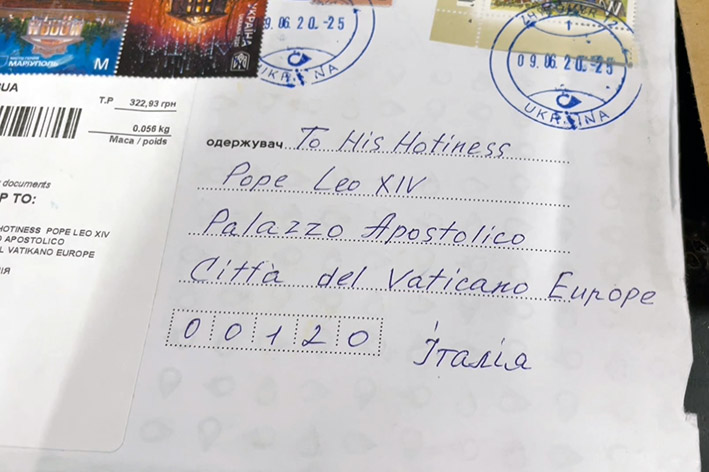 МАРІУПОЛЬ
M
УКРАЇНА
09.06.20.-25
UKRAINA
1
09.06.20.-25
UKRAINA
UA
Т.Р 322,93 грн
0.056 kg
Maca / poids
documents
P TO:
HOTINESS POPE LEO XIV
O APOSTOLICO
L VATIKANO EUROPE
ІЯ
одержувач To His Hotiness
Pope Leo XIV
Palazzo Apostolico
Città del Vaticano Europe
00120
Італія